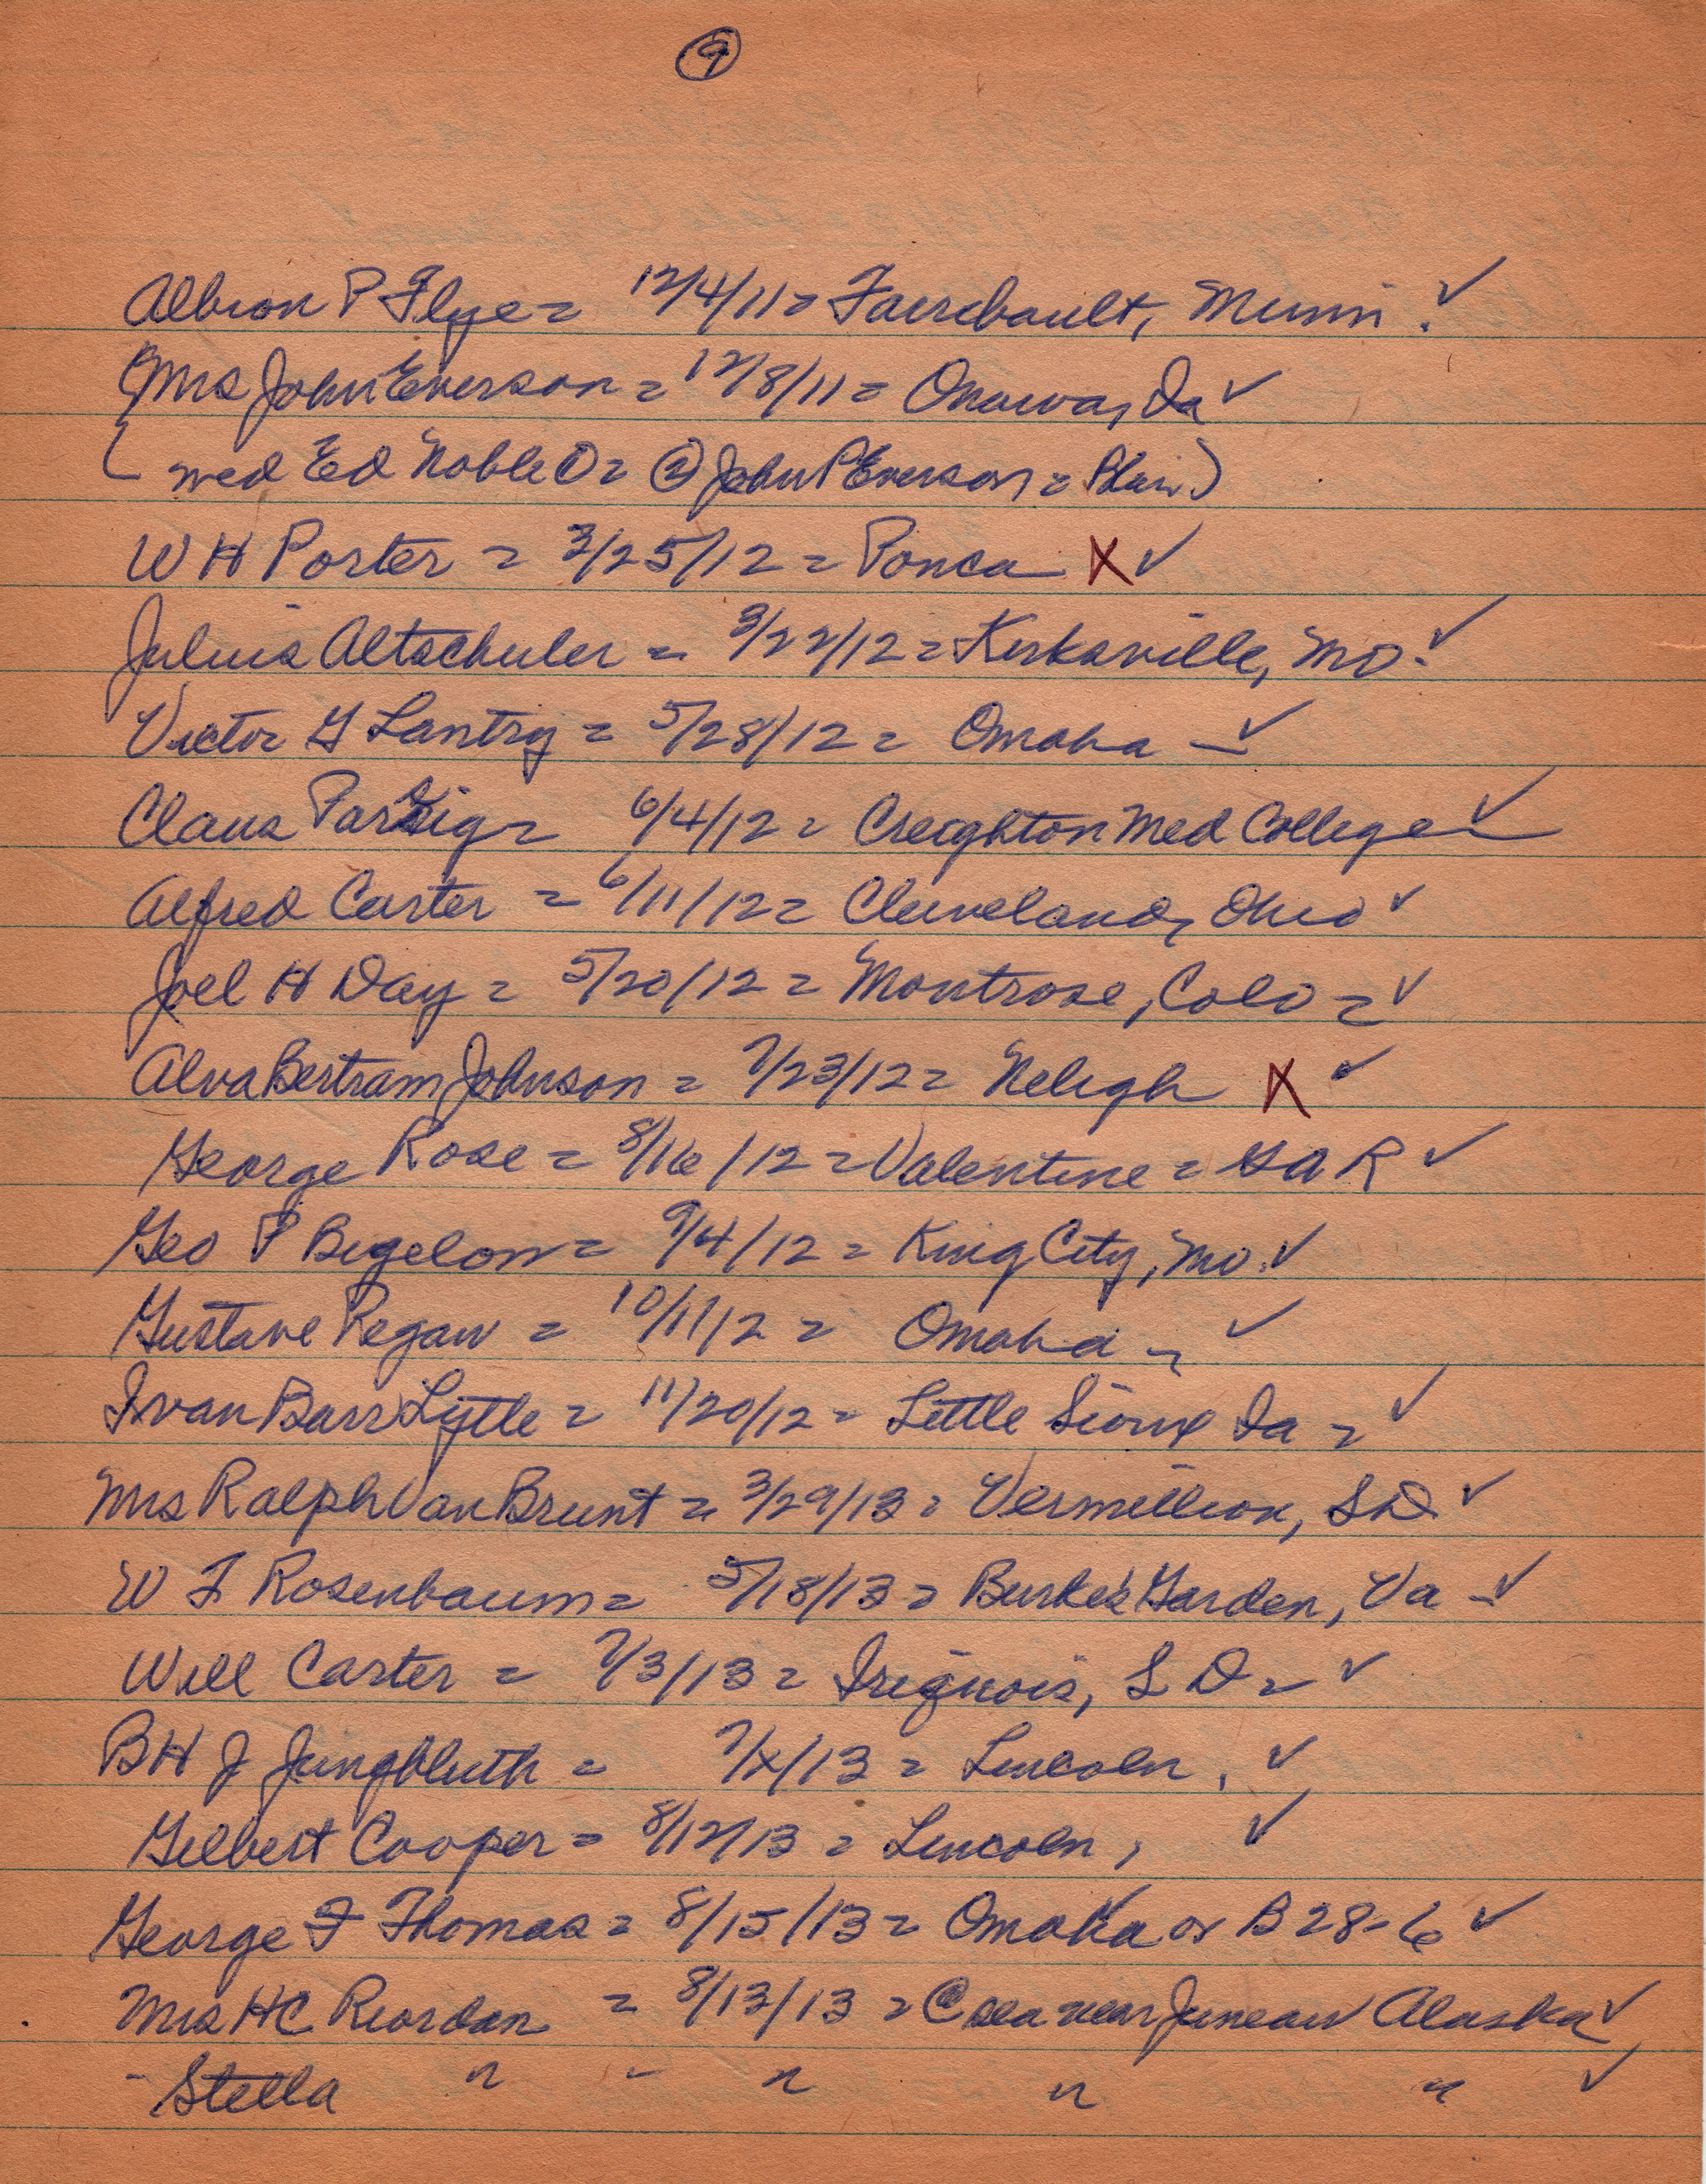 9
Albion P Flye = 12/4/11 = Fairebault, Minn. ✓
(Mrs John Everson = 12/8/11 = Onawa, Ia ✓
( med Ed Noble ① = ② John P Everson = Blair)
W H Porter = 3/25/12 = Ponca X ✓
Julius Altschuler = 3/22/12 = Kirksville, Mo. ✓
Victor G Lantry = 5/28/12 = Omaha – ✓
Claus = 6/4/12 = Creighton Med College ✓
Alfred Carter = 6/11/12 = Cleveland, Ohio ✓
Joel H Day = 5/20/12 = Montrose, Colo = ✓
Alva Bertram Johnson = 7/23/12 = Neligh X ✓
George Rose = 8/16/12 = Valentine = GAR ✓
Geo P Bigelow = 9/4/12 = King City, Mo. ✓
Gustave Regan = 10/11/12 = Omaha – ✓
Ivan Barr Lytle = 11/20/12 = Little Sioux Ia = ✓
Mrs Ralph Van Brunt = 3/29/13 = Vermillion, SD ✓
W F Rosenbaum = 5/18/13 = Burke's Garden, Va – ✓
Will Carter = 7/3/13 = Iriquois, S D = ✓
B H J Jungbluth = 7/x/13 = Lincoln, ✓
Gilbert Cooper = 8/12/13 = Lincoln, ✓
George F Thomas = 8/15/13 = Omaha or B 28-6 ✓
Mrs HC Riordan = 8/13/13 = @ sea near Juneau Alaska ✓
- Stella " " " " " ✓